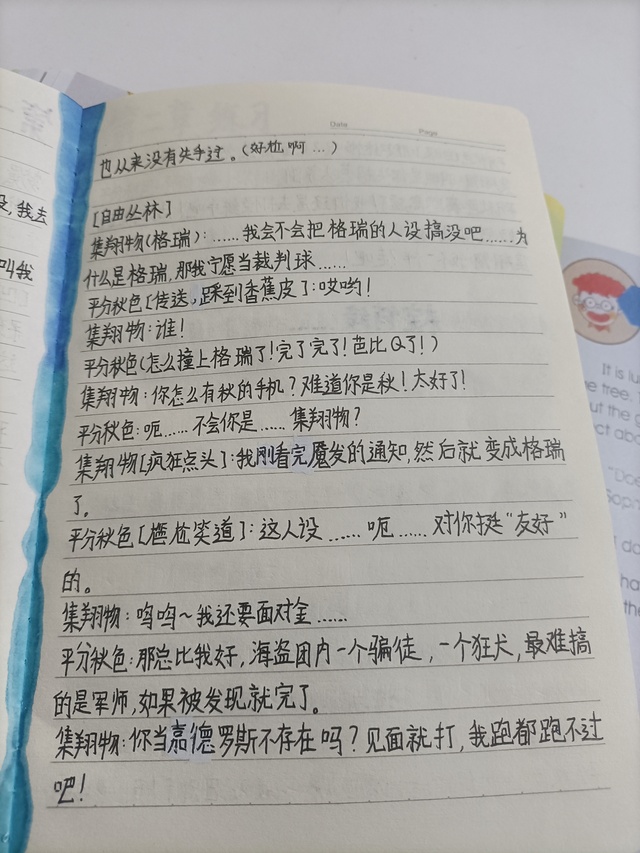 Date
Page
也从来没有失手过。(好尬啊…)
[自由丛林]
集翔物(格瑞):……我会不会把格瑞的人设搞没吧……为
什么是格瑞,那我宁愿当裁判球……
平分秋色[传送,踩到香蕉皮]:哎哟!
集翔物:谁!
平分秋色(怎么撞上格瑞了!完了完了!芭比Q了!)
集翔物:你怎么有秋的手机?难道你是秋!太好了!
平分秋色:呃……不会你是……集翔物?
集翔物[疯狂点头]:我刚看完魇发的通知,然后就变成格瑞
了。
平分秋色[尴尬笑道]:这人设……呃……对你挺“友好”
的。
集翔物:呜呜~我还要面对金……
平分秋色:那总比我好,海盗团内一个骗徒,一个狂犬,最难搞
的是军师,如果被发现就完了。
集翔物:你当嘉德罗斯不存在吗?见面就打,我跑都跑不过
吧!
没,我去
叫我
It is lu
e tree.
ut the g
ct abou
"Doe
Soph
I do
ha
the